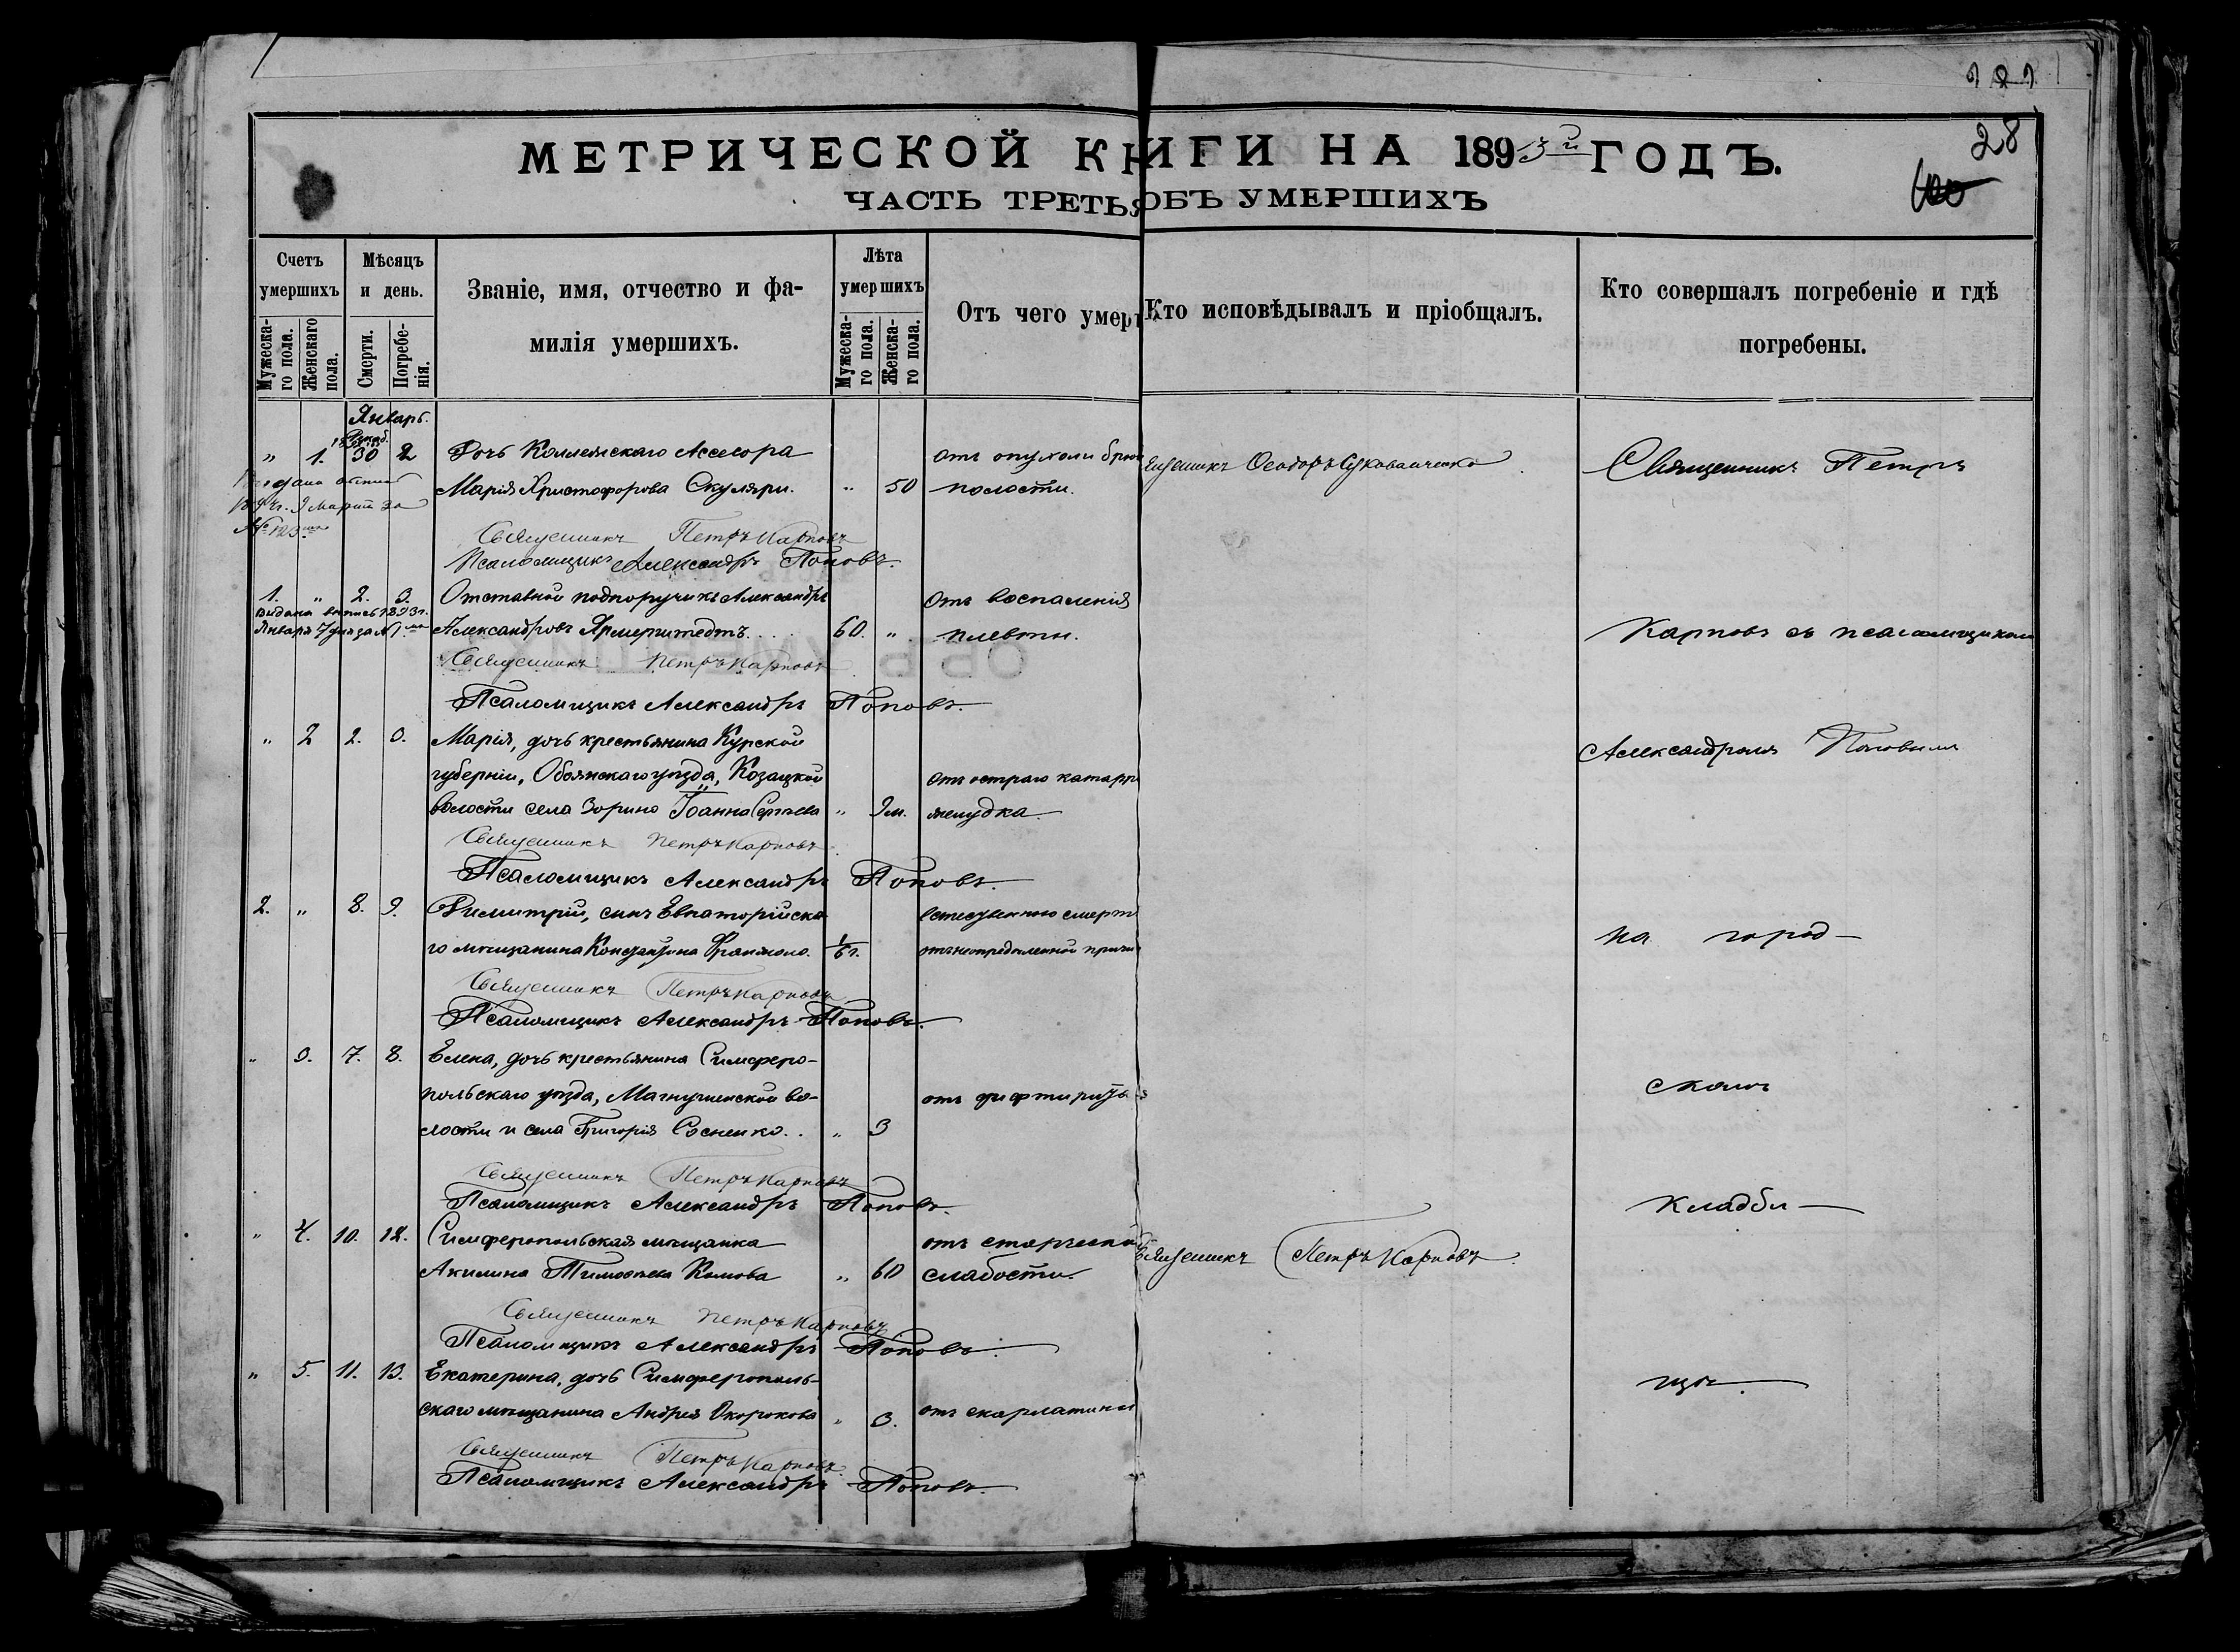 121
28
МЕТРИЧЕСКОЙ КНИГИ НА 1893й ГОДЪ.
ЧАСТЬ ТРЕТЬЯ ОБЪ УМЕРШИХЪ
Счетъ умершихъ
Мужеска-го пола.
Женскаго пола.
Мѣсяцъ и день.
Смерти.
Погребе-нія.
Званіе, имя, отчество и фа-
милія умершихъ.
Лѣта умершихъ
Мужеска-го пола.
Женска-го пола.
Отъ чего умеръ
Кто исповѣдывалъ и пріобщалъ.
Кто совершалъ погребеніе и гдѣ
погребены.
Январь.
Декаб.
„ 1. 30 2 Дочь Коллежскаго Ассесора отъ опухоли брюш
Священникъ Петръ
Марія Христофорова Скуляри. „ 50 полости.
Священникъ Петръ Карповъ
Псаломщикъ Александръ Поповъ.
1. „ 2. 3. Отставной подпоручикъ Александръ Отъ воспаленія
Видана выпись 1893г.
Января 7 дня за №1.
Александровъ 60. „ плевты.
Карповъ съ псаломщикомъ
Священникъ Петръ Карповъ
Псаломщикъ Александръ Поповъ.
„ 2 2. 3. Марія, дочь крестьянина Курской
Александромъ Поповымъ
губерніи, Обоянскаго уѣзда, Козацкой отъ остраго катарра
волости села Зорино Іоанна Сергѣева „ 9м. желудка.
Священникъ Петръ Карповъ
Псаломщикъ Александръ Поповъ.
2. „ 8. 9. Димитрій, сынъ Евпаторійска естественною смерт
на город-
го мѣщанина Константина 1/6 г. отъ неопредѣленной причи
Священникъ Петръ Карповъ
Псаломщикъ Александръ Поповъ.
„ 3. 7. 8. Елена, дочь крестьянина Симферо-
польскаго уѣзда, Мангушской во- отъ дифтирита
скомъ
лости и села Григорія Сосненко.. „ 3
Священникъ Петръ Карповъ
Псаломщикъ Александръ Поповъ.
кладби-
„ 4. 10. 12. Симферопольская мѣщанка отъ старческой
Священникъ Петръ Карповъ.
Акилина Тимоѳеева Комова „ 60 слабости.
Священникъ Петръ Карповъ
Псаломщикъ Александръ Поповъ.
„ 5. 11. 13. Екатерина, дочь Симферополь-
щѣ.
скаго мѣщанина Андрея Окорокова „ 3. отъ скарлатины
Священникъ Петръ Карповъ
Псаломщикъ Александръ Поповъ.